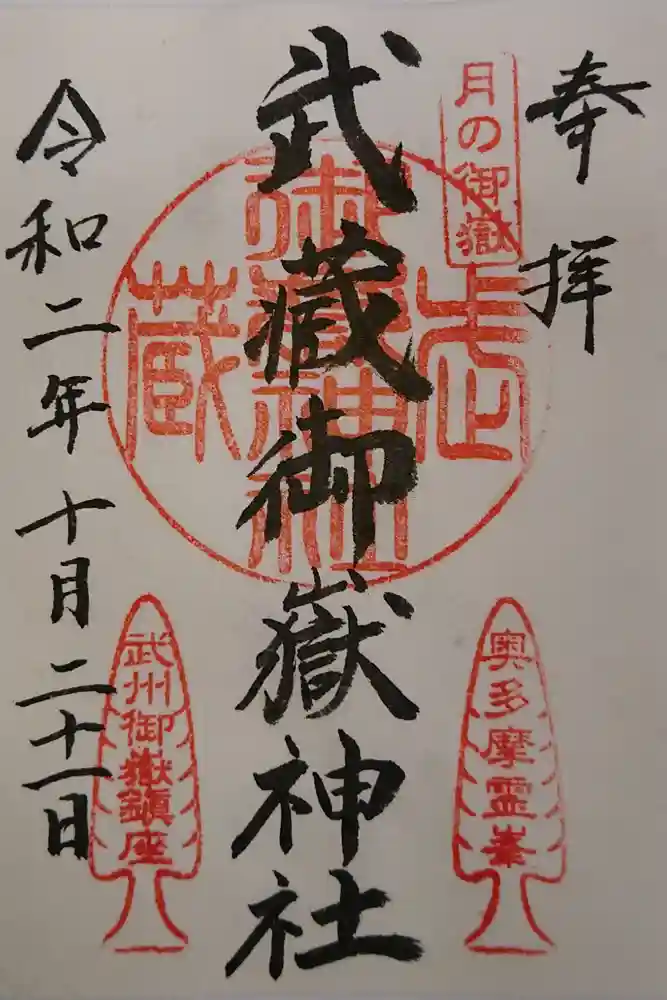 奉拝
月の御嶽
武蔵御嶽神社
武蔵御嶽神社
奥多摩霊峯
令和二年十月二十一日
武州御嶽鎮座